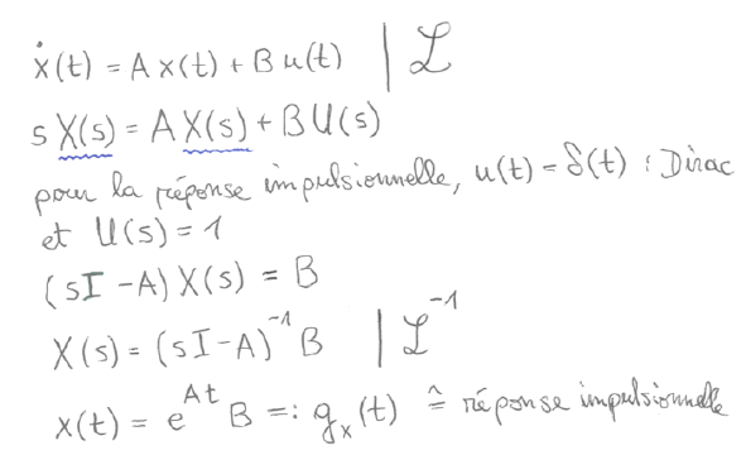 ẋ(t) = A x(t) + B u(t) | ℒ
s X(s) = A X(s) + B U(s)
pour la réponse impulsionnelle, u(t) = δ(t) : Dirac
et U(s) = 1
(sI - A) X(s) = B
X(s) = (sI - A)⁻¹ B | ℒ⁻¹
x(t) = e^{At} B =: gₓ(t) ≙ réponse impulsionnelle